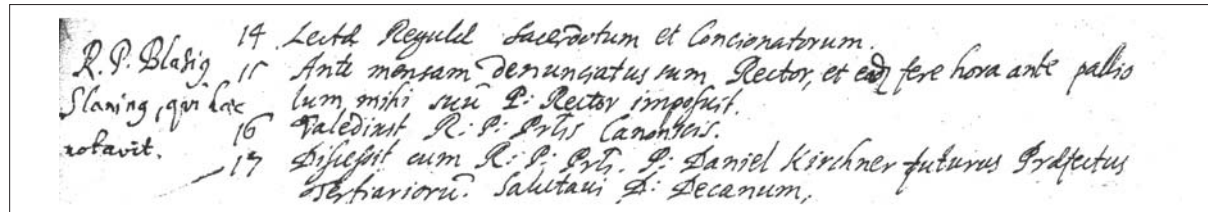 R. P. Blasig
Slaning, qui hæc
notavit.
14 Lectæ Regulæ Sacerdotum et Concionatorum.
15 Ante mensam denunciatus sum, Rector, et eadq fere hora ante pallio
lum, mihi suū P: Rector imposuit.
16 Valedixit R: P: Prlis Canonicis.
17 Discessit cum R: P: Prli. P: Daniel Kirchner futurus Præfectus
Tertiariorū. Salutavi D: Decanum,